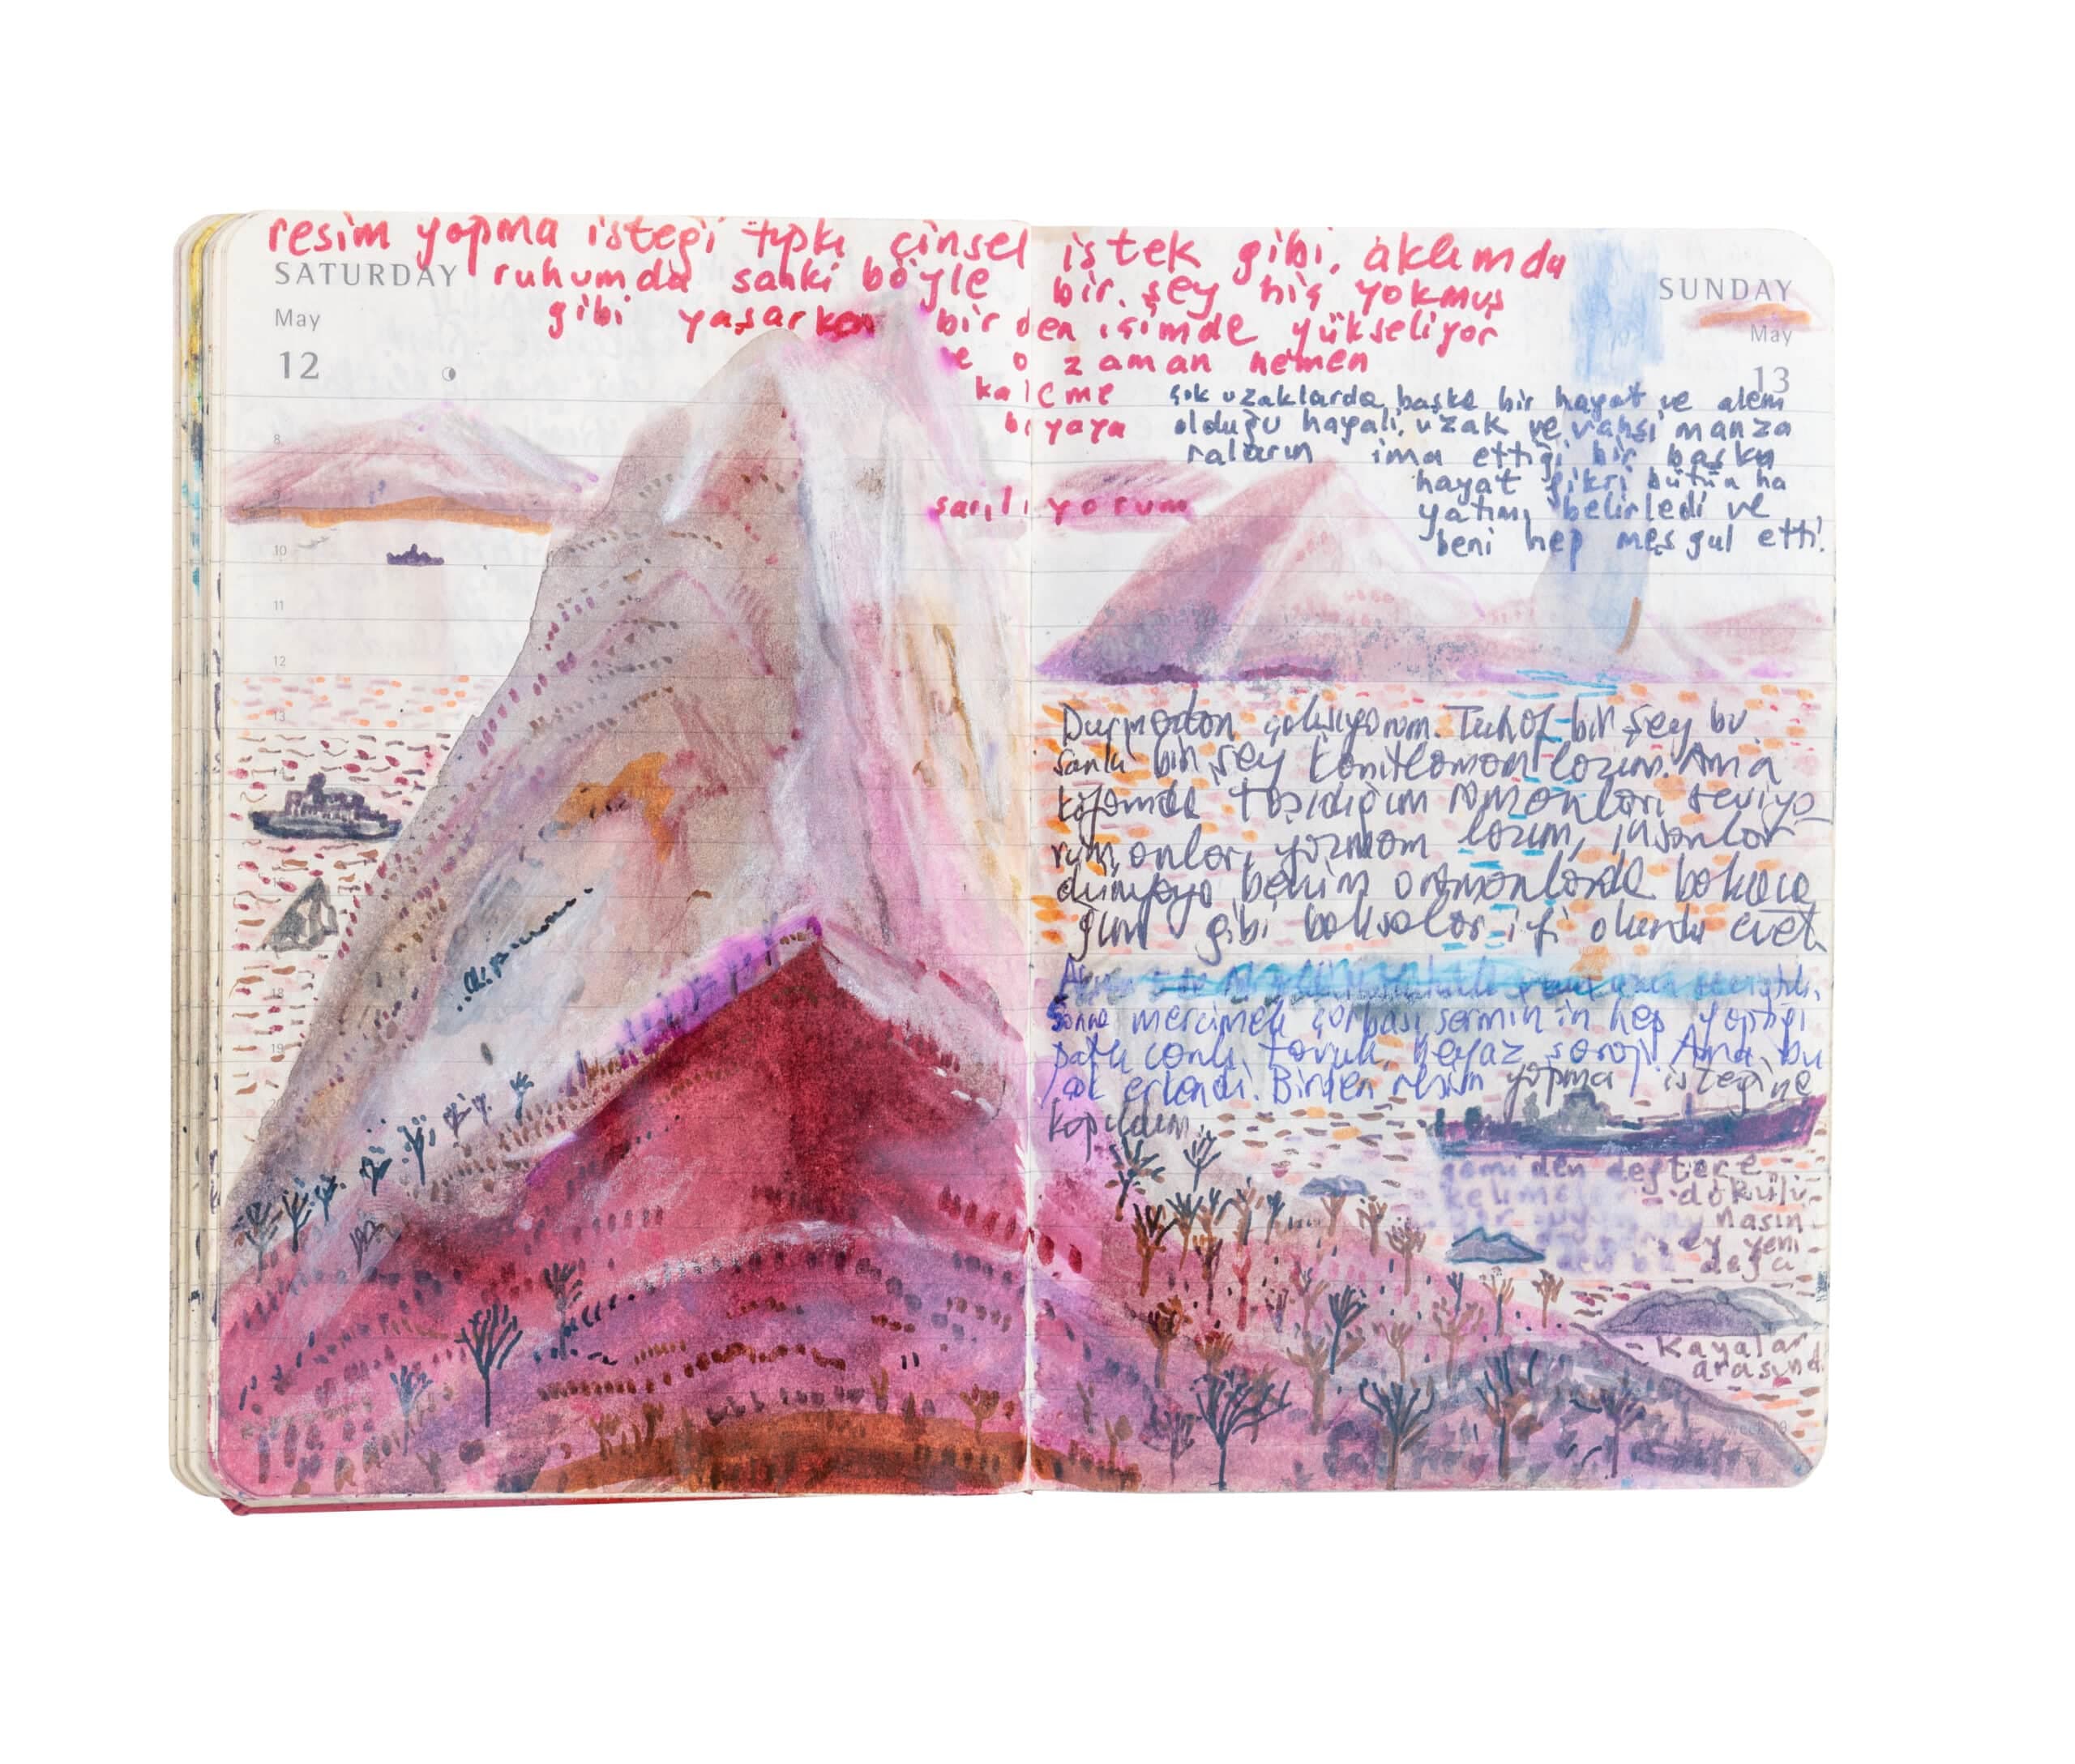 resim yapma isteği tıpkı cinsel istek gibi, aklımda
SATURDAY
ruhumda sanki böyle bir şey hiç yokmuş
SUNDAY
May
gibi yaşarken birden içimde yükseliyor
May
12
ve o zaman hemen
13
kaleme
boyaya
sarılıyorum
çok uzaklarda başka bir hayat ve alem
olduğu hayali, uzak ve vahşi manza
raların ima ettiği bir başka
hayat fikri bütün ha
yatımı belirledi ve
beni hep meşgul etti.
8
9
10
11
12
13
14
18
19
Durmadan çalışıyorum. Tuhaf bir şey bu
sanki bir şey kanıtlamam lazım. Ama
kafamda taşıdığım romanları seviyo
rum, onları yazmam lazım, insanlar
dünyaya benim romanlarda bakaca
ğım gibi baksalar iyi olurdu evet
Sonra mercimek çorbası, Şermin'in hep yaptığı
patlıcanlı tavuk, beyaz şarap! Ama bu
çok erkendi. Birden resim yapma isteğine
kapıldım.
gemiden deftere
kelimeler dökülü
nasın
ey yeni
defa
Kayalar
arasında